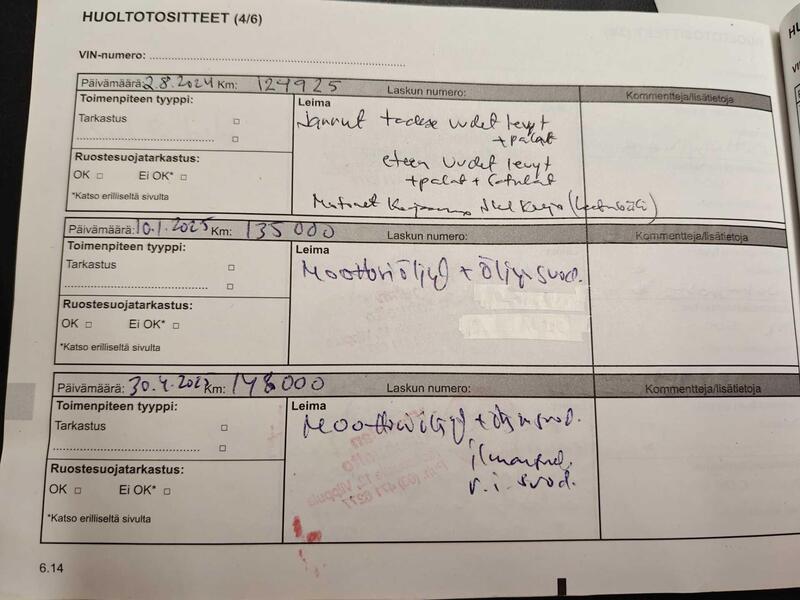 HUOLTOTOSITTEET (4/6)
VIN-numero:
Päivämäärä: 2.8.2024 Km: 124925 Laskun numero: Kommentteja/lisätietoja
Toimenpiteen tyyppi:
Tarkastus
Ruostesuojatarkastus:
OK Ei OK*
*Katso erilliseltä sivulta
Leima
Jarrut taakse uudet levyt
+ palat
eteen uudet levyt
+ palat + satulat
Päivämäärä: 10.1.2025 Km: 135000 Laskun numero: Kommentteja/lisätietoja
Toimenpiteen tyyppi:
Tarkastus
Ruostesuojatarkastus:
OK Ei OK*
*Katso erilliseltä sivulta
Leima
Moottoriöljyt + öljynsuod.
Päivämäärä: 30.4.2025 Km: 148000 Laskun numero: Kommentteja/lisätietoja
Toimenpiteen tyyppi:
Tarkastus
Ruostesuojatarkastus:
OK Ei OK*
*Katso erilliseltä sivulta
Leima
Moottoriöljyt + öljynsuod.
ilmansuod.
r.i. suod.
6.14